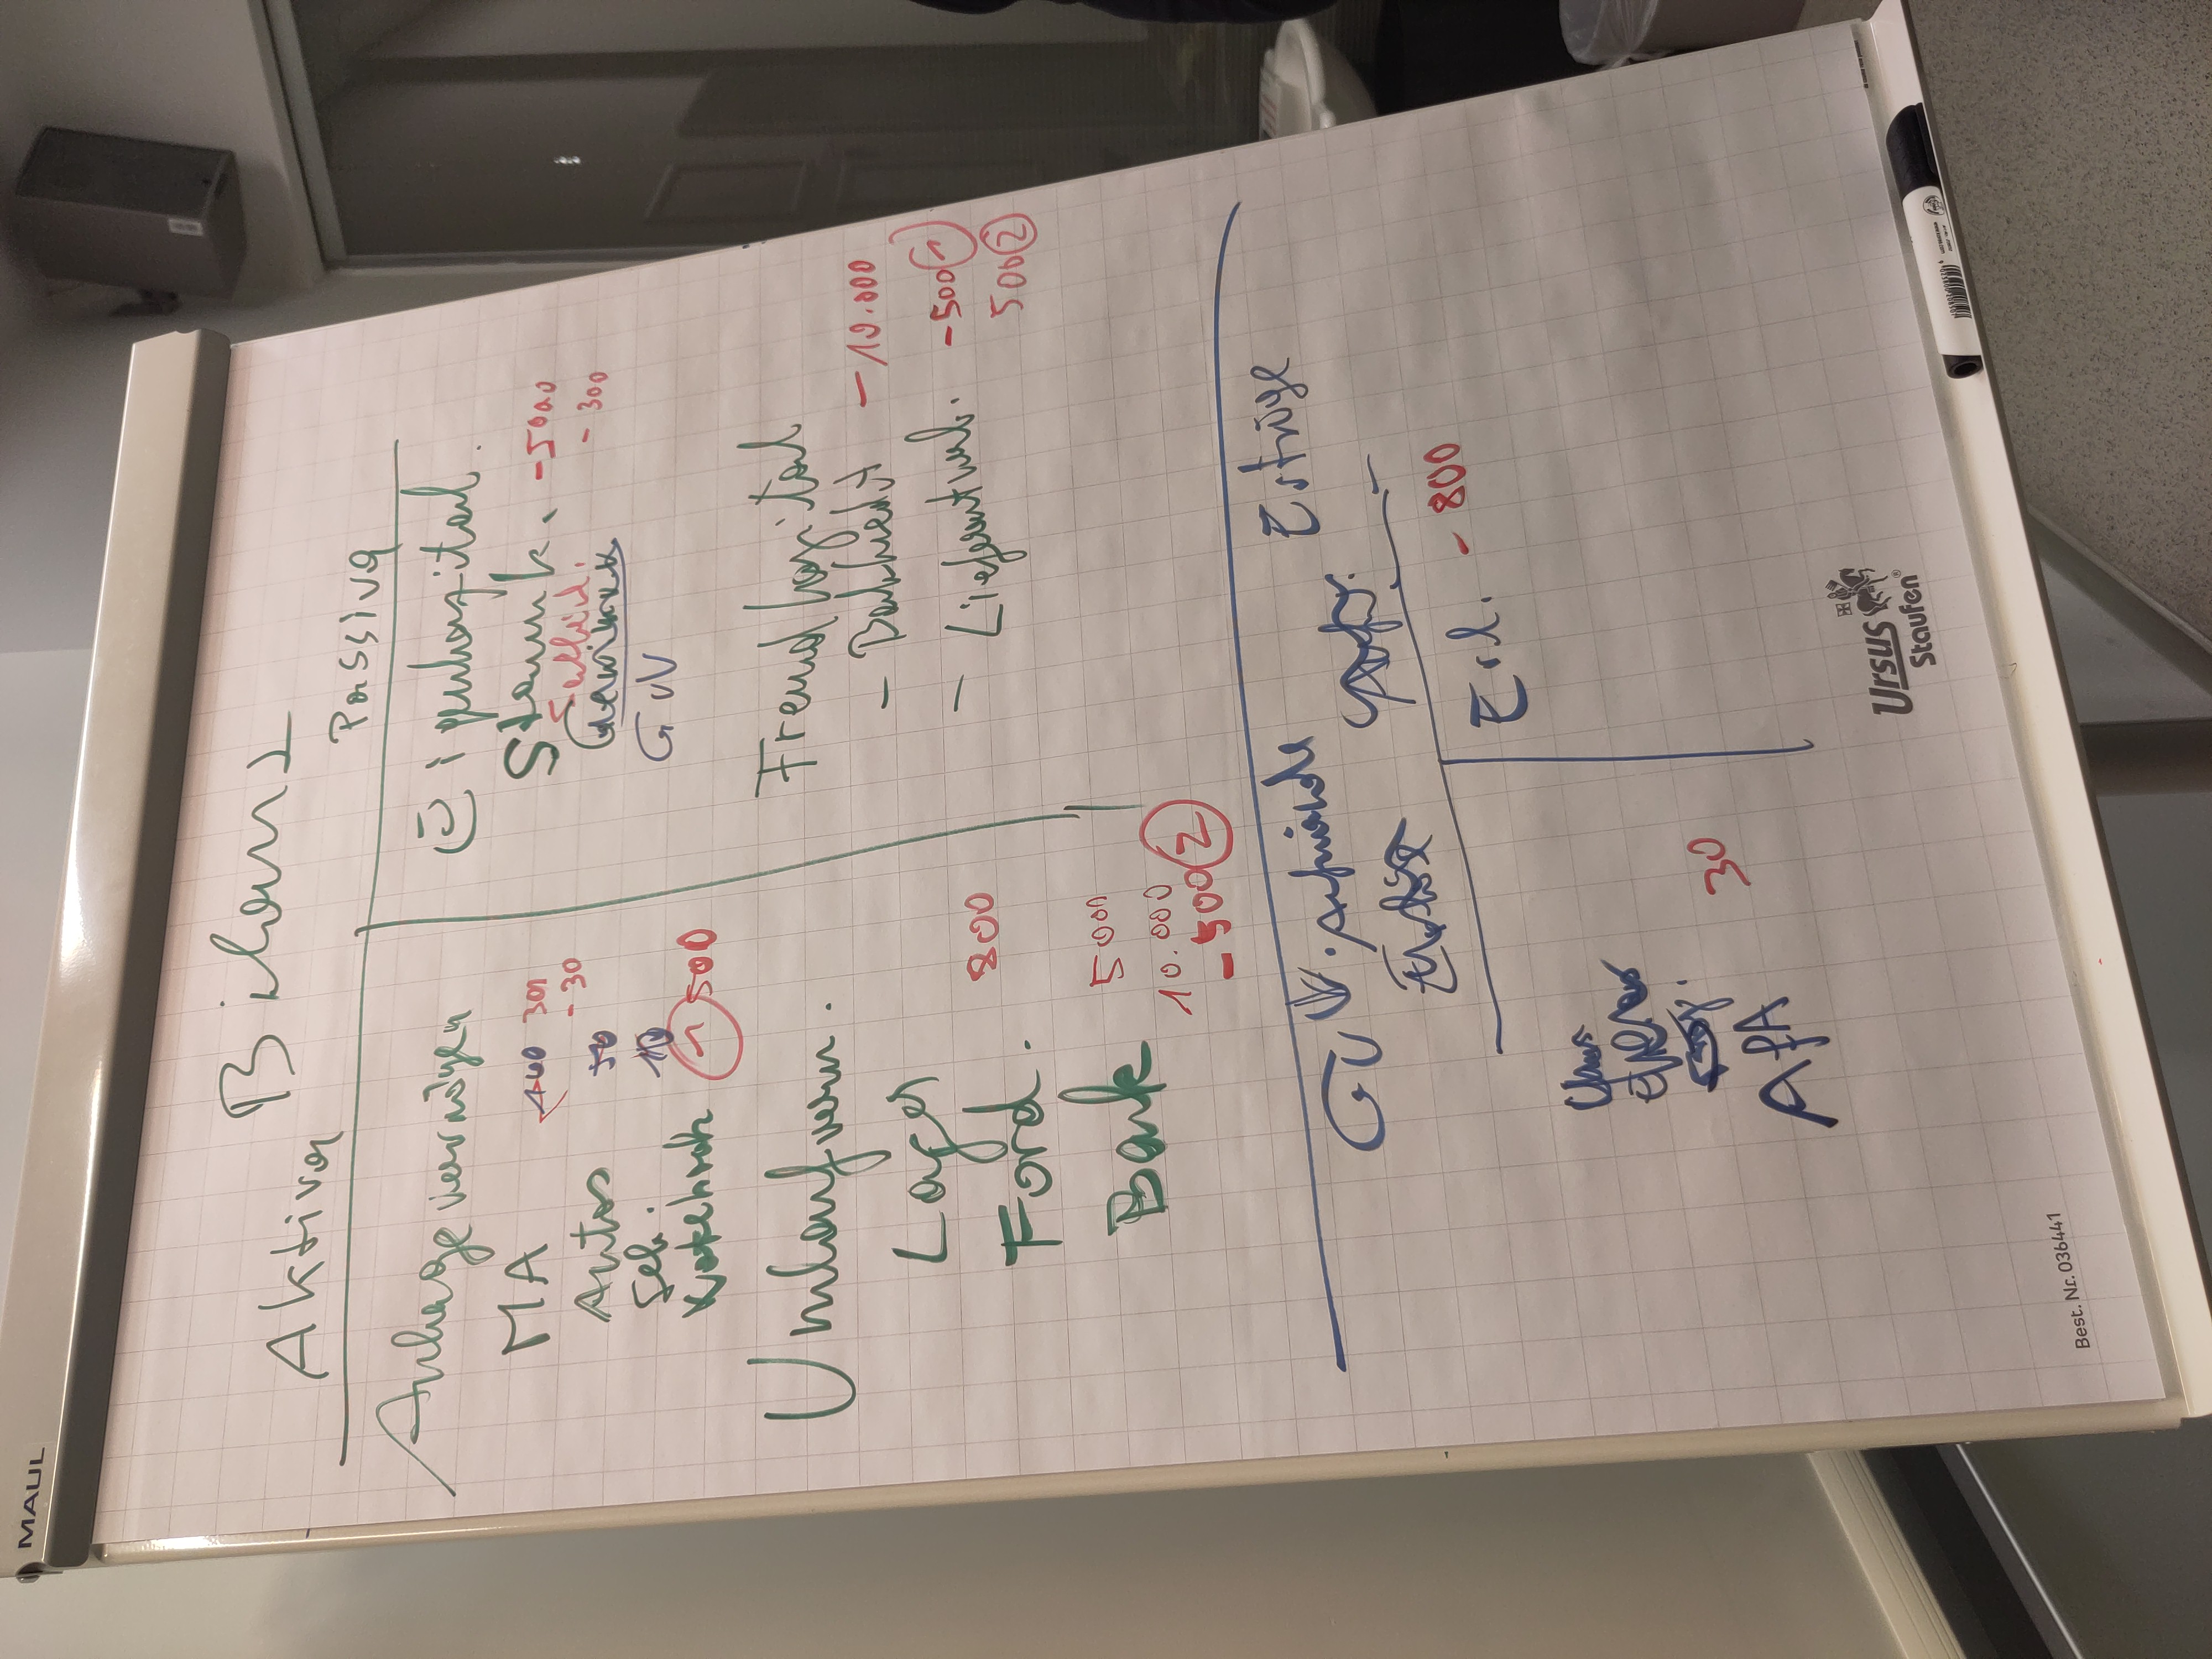 MAUL
Bilanz
Aktiva
Passiva
Anlagevermögen
MA 300
- 30
Autos 50
Sch. 10
Notebook 1 500
Umlaufverm.
Lager
Ford. 800
Bank 5000
10.000
- 500 2
Eigenkapital.
Stammk. - 5000
- 300
GuV
Fremdkapital
- Bankkredit - 10.000
- Lieferantverb. - 500 1
500 2
GuV. Aufwände
Erträge
Erl. - 800
30
AfA
Ursus
Staufen®
Best. Nr. 036441